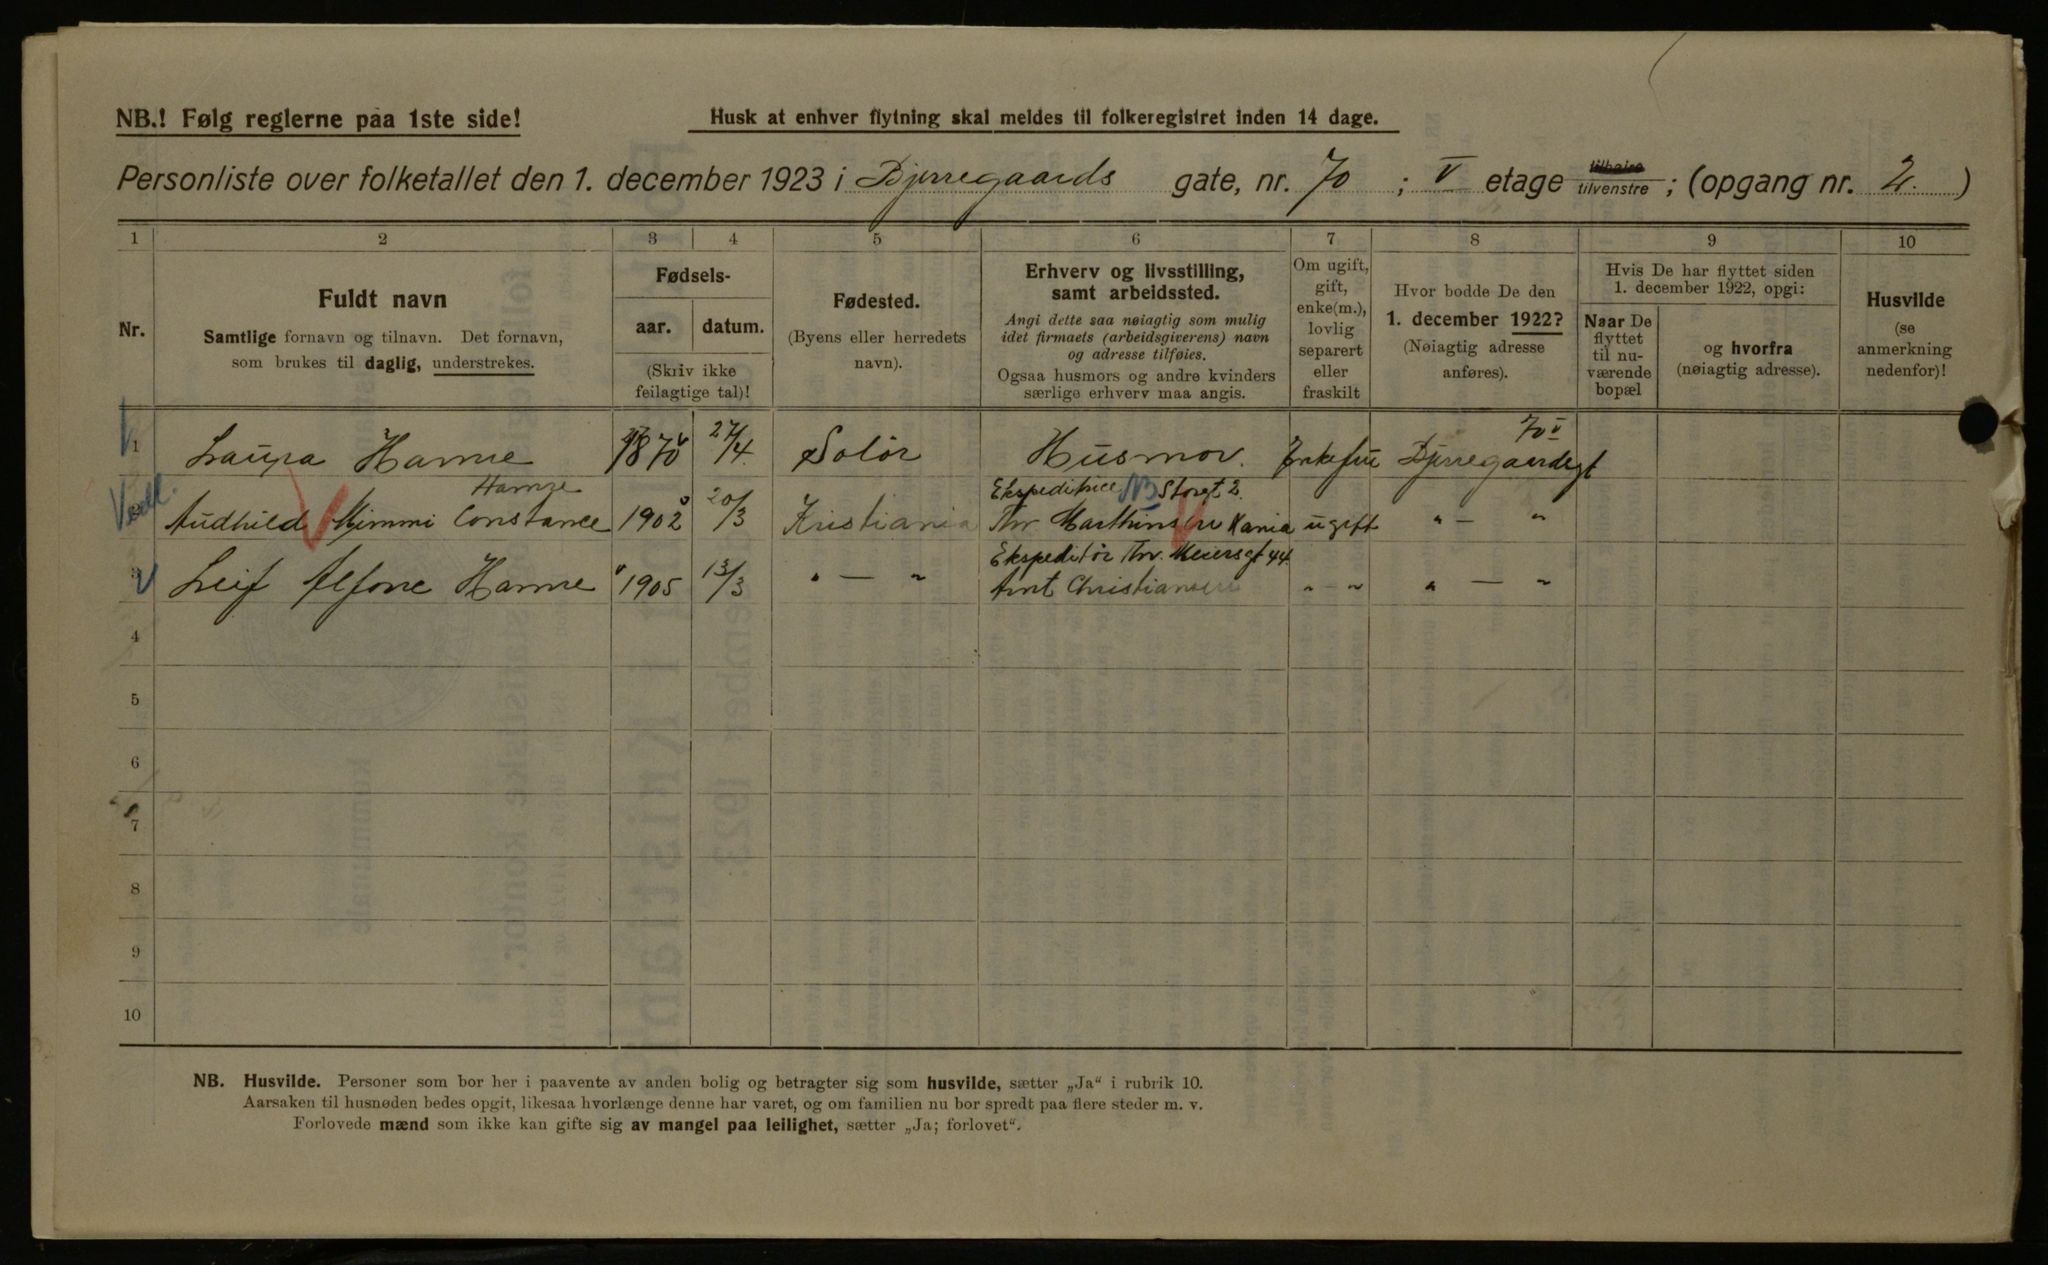 NB.! Følg reglerne paa 1ste side!
Husk at enhver flytning skal meldes til folkeregistret inden 14 dage.
Personliste over folketallet den 1. december 1923 i Bjerregaards gate, nr. 70 ; V etage tilhøire tilvenstre ; (opgang nr. 2. )
1 2 3 4 5 6 7 8 9 10
Nr.
Fuldt navn
Samtlige fornavn og tilnavn. Det fornavn,
som brukes til daglig, understrekes.
Fødsels-
aar. datum.
(Skriv ikke
feilagtige tal)!
Fødested.
(Byens eller herredets
navn).
Erhverv og livsstilling,
samt arbeidssted.
Angi dette saa nøiagtig som mulig
idet firmaets (arbeidsgiverens) navn
og adresse tilføies.
Ogsaa husmors og andre kvinders
særlige erhverv maa angis.
Om ugift,
gift,
enke(m.),
lovlig
separert
eller
fraskilt
Hvor bodde De den
1. december 1922?
(Nøiagtig adresse
anføres).
Hvis De har flyttet siden
1. december 1922, opgi:
Naar De
flyttet
til nu-
værende
bopæl
og hvorfra
(nøiagtig adresse).
Husvilde
(se
anmerkning
nedenfor)!
70 V
1 Laura Hamre 1870 27/4. Solør Husmor. Enkefru Bjerregaardsgt
Hamre Ekspeditrice NB Storgt 2.
Audhild Mimmi Constance 1902 20/3 Kristiania Thv Marthinsen Kania ugift " — "
Ekspeditør Thv. Meiersgt 44
3 Leif Alfons Hamre 1905 13/3 " — " Arnt Christiansen " — " " — "
4
5
6
7
8
9
10
NB. Husvilde. Personer som bor her i paavente av anden bolig og betragter sig som husvilde, sætter „Ja“ i rubrik 10.
Aarsaken til husnøden bedes opgit, likesaa hvorlænge denne har varet, og om familien nu bor spredt paa flere steder m. v.
Forlovede mænd som ikke kan gifte sig av mangel paa leilighet, sætter „Ja; forlovet“.